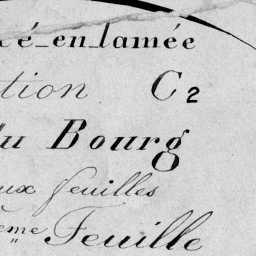 cé-en-lamée
tion C2
du Bourg
ux feuilles
eme Feuille